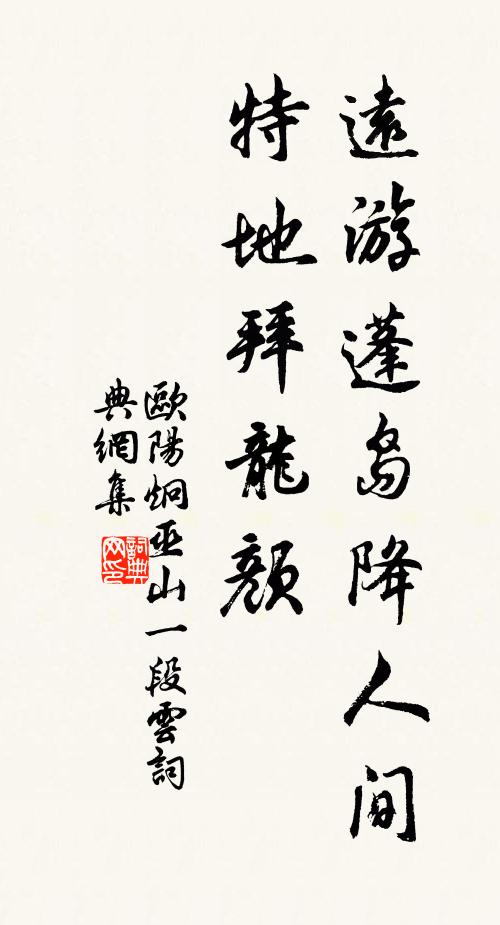 遠游蓬島降人间
特地拜龍顔
歐陽炯巫山一段雲詞
典網集
詞典
网印